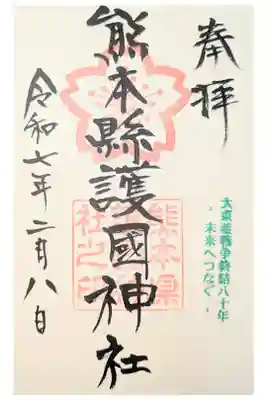 奉拝
大東亜戦争終結八十年
・未来へつなぐ・
熊本縣護國神社
熊本県
護国神
社之印
令和七年二月八日